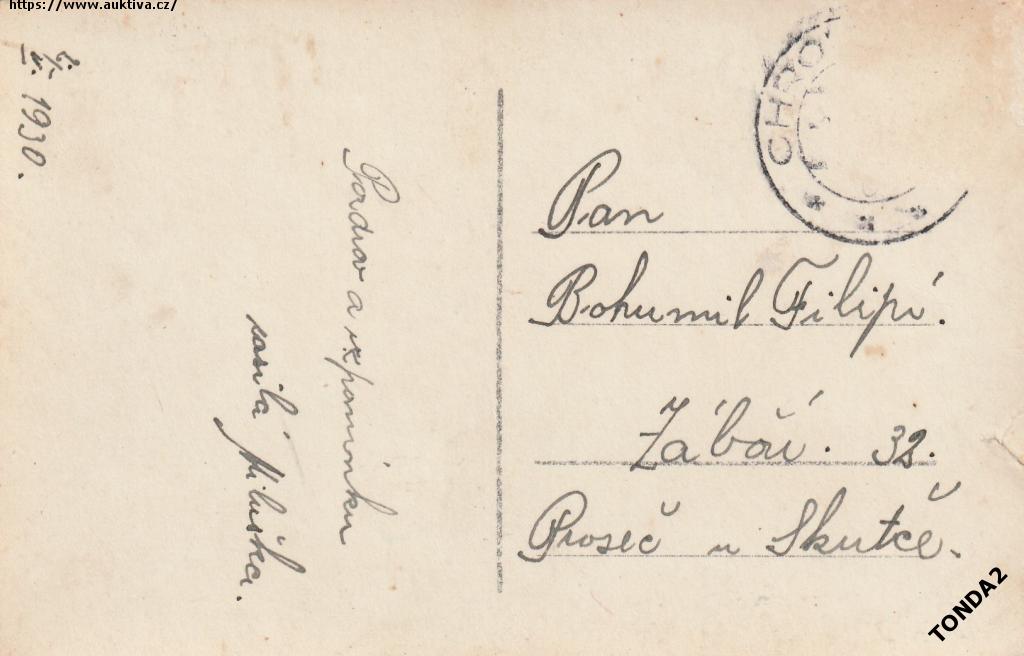 https://www.auktiva.cz/
1930.
Pozdrav a vzpomínku
zasílá Miluška.
CHRO
Pan
Bohumil Filipi.
Zábčí. 32.
Proseč u Skutče.
TONDA2